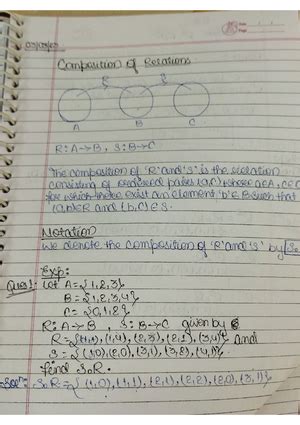 Composition of Relations
A B C
R: A→B , S: B→C
The composition of 'R' and 'S' is the relation
consisting of ordered pairs (a,c) where a∈A, c∈C
for which there exist an element 'b'∈B such that
(a,b)∈R and (b,c)∈S.
Notation
We denote the composition of 'R' and 'S' by SoR
Exp:
Ques1: Let A={1,2,3}
B={1,2,3,4}
C={0,1,2}
R: A→B , S: B→C given by
R={(1,1), (1,4), (2,3), (2,1), (3,4)} and
S={(1,0), (2,0), (3,1), (3,2), (4,1)}
find SoR.
Sol: SoR={(1,0), (1,1), (2,1), (2,2), (2,0), (3,1)}